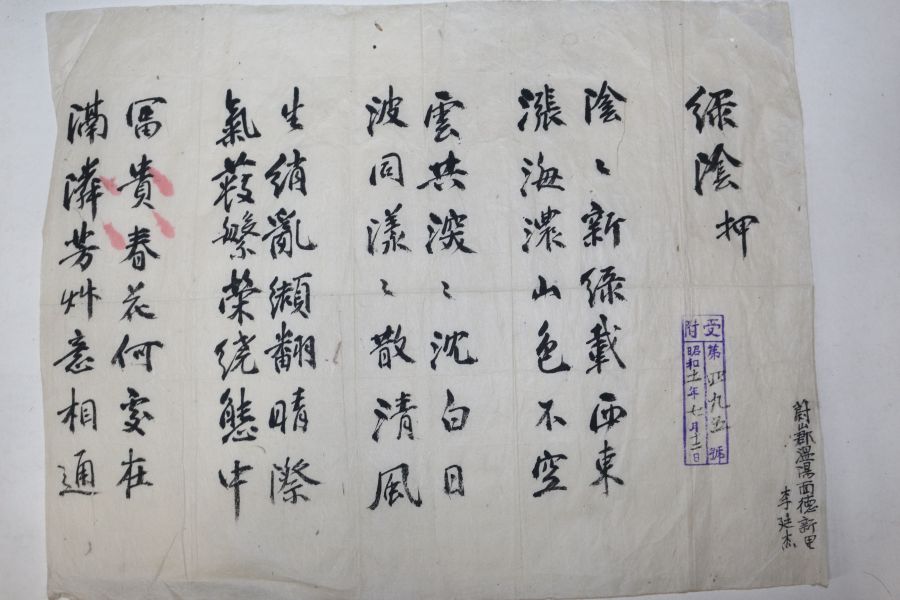 蔚山郡溫陽面德新里
李廷杰
受附
第四九五號
昭和十一年七月十二日
綠陰 押
陰〻新綠載西東
漲海濃山色不空
雲共深〻沈白日
波同漾〻散清風
生綃亂纈翻晴際
氣繁榮繞態中
冨貴春花何處在
滿隣芳艸意相通